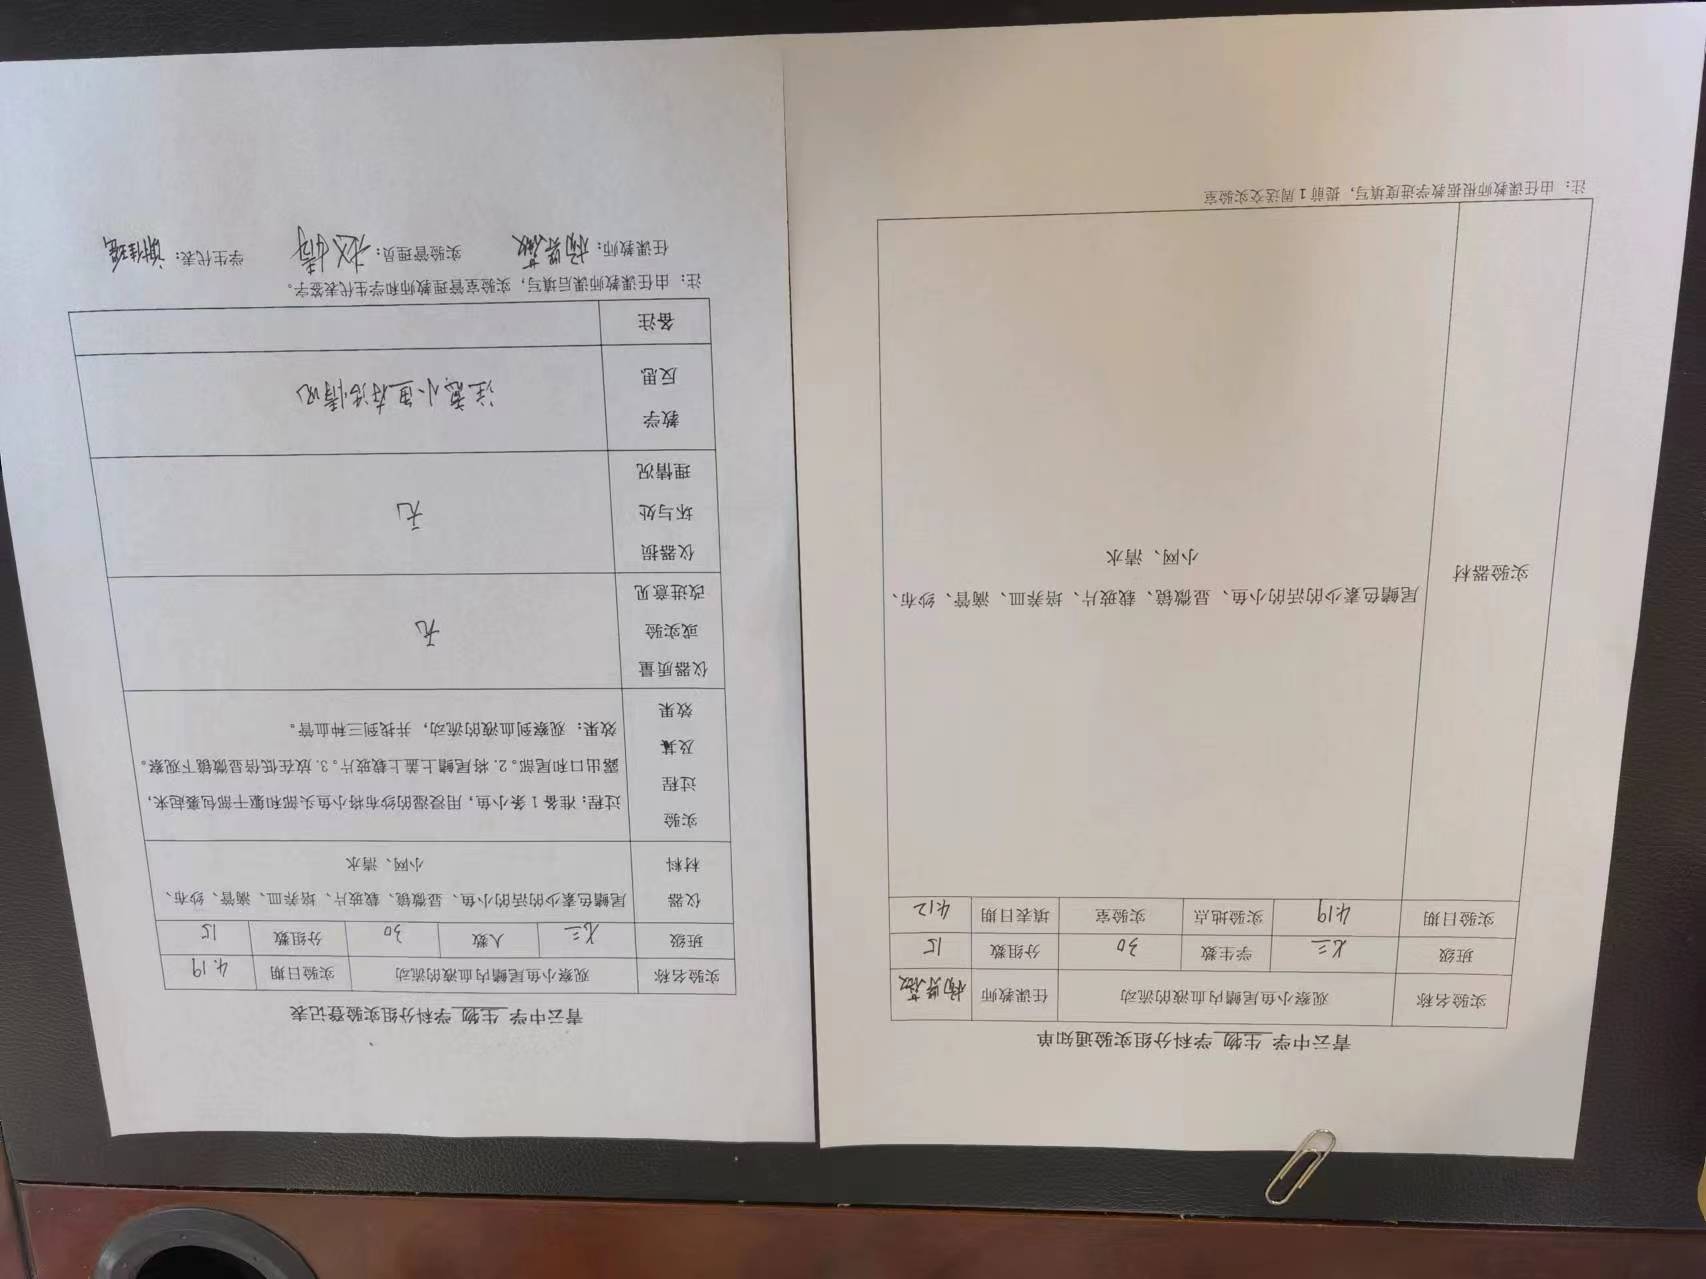 青云中学 生物 学科分组实验通知单
实验名称 观察小鱼尾鳍内血液的流动 任课教师
班级 七三 学生数 30 分组数 15
实验日期 4.19 实验地点 实验室 填表日期 4.12
实验器材
尾鳍色素少的活的小鱼、显微镜、载玻片、培养皿、滴管、纱布、
小网、清水
注：由任课教师根据教学进度填写，提前1周送交实验室
青云中学 生物 学科分组实验登记表
实验名称 观察小鱼尾鳍内血液的流动 实验日期 4.19
班级 七三 人数 30 分组数 15
仪器 尾鳍色素少的活的小鱼、显微镜、载玻片、培养皿、滴管、纱布、
材料 小网、清水
实验
过程
及其
效果
过程：准备1条小鱼，用浸湿的纱布将小鱼头部和躯干部包裹起来，
露出口和尾部。2. 将尾鳍上盖上载玻片。3. 放在低倍显微镜下观察。
效果：观察到血液的流动，并找到三种血管。
仪器质量
或实验
改进意见
无
仪器损
坏与处
理情况
无
教学
反思
注意小鱼存活情况
备注
注：由任课教师课后填写，实验室管理教师和学生代表签字。
任课教师： 实验管理员： 学生代表：